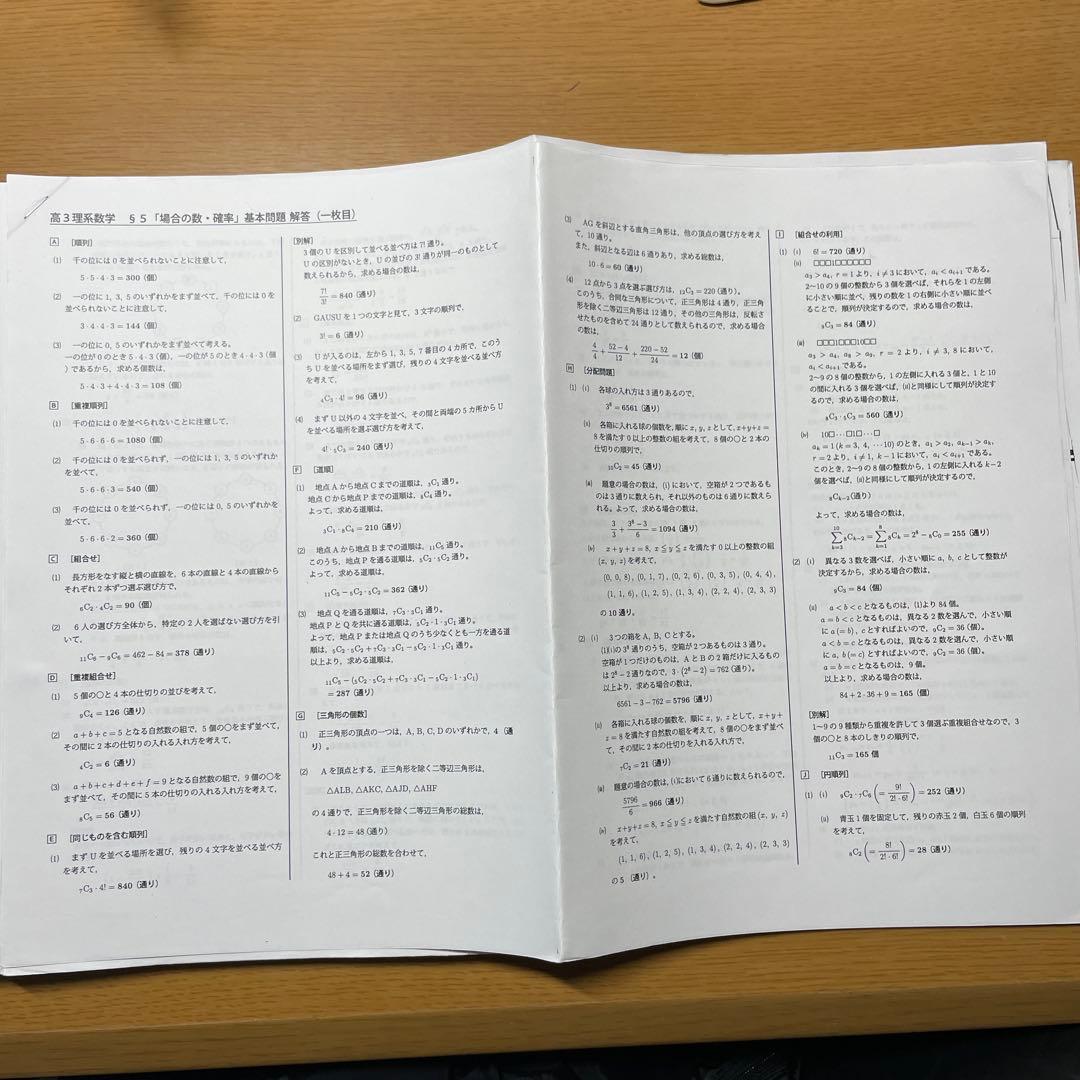 高3理系数学 §5「場合の数・確率」基本問題 解答（一枚目）
A [順列]
(1) 千の位には0を並べられないことに注意して，
5·5·4·3＝300（個）
(2) 一の位に1, 3, 5のいずれかをまず並べて，千の位には0を
並べられないことに注意して，
3·4·4·3＝144（個）
(3) 一の位に0, 5のいずれかをまず並べて考える。
一の位が0のとき5·4·3（個），一の位が5のとき4·4·3（個
）であるから，求める個数は，
5·4·3＋4·4·3＝108（個）
B [重複順列]
(1) 千の位には0を並べられないことに注意して，
5·6·6·6＝1080（個）
(2) 千の位には0を並べられず，一の位には1, 3, 5のいずれか
を並べて，
5·6·6·3＝540（個）
(3) 千の位には0を並べられず，一の位には0, 5のいずれかを
並べて，
5·6·6·2＝360（個）
C [組合せ]
(1) 長方形をなす縦と横の直線を，6本の直線と4本の直線から
それぞれ2本ずつ選ぶ選び方で，
₆C₂·₄C₂＝90（個）
(2) 6人の選び方全体から，特定の2人を選ばない選び方を引
いて，
₁₁C₆－₉C₆＝462－84＝378（通り）
D [重複組合せ]
(1) 5個の○と4本の仕切りの並びを考えて，
₉C₄＝126（通り）
(2) a＋b＋c＝5となる自然数の組で，5個の○をまず並べて，
その間に2本の仕切りの入れる入れ方を考えて，
₄C₂＝6（通り）
(3) a＋b＋c＋d＋e＋f＝9となる自然数の組で，9個の○を
まず並べて，その間に5本の仕切りの入れる入れ方を考えて，
₈C₅＝56（通り）
E [同じものを含む順列]
(1) まずUを並べる場所を選び，残りの4文字を並べる並べ方
を考えて，
₇C₃·4!＝840（通り）
[別解]
3個のUを区別して並べる並べ方は7!通り。
Uの区別がないとき，Uの並びの3!通りが同一のものとして
数えられるから，求める場合の数は，
7!/3!＝840（通り）
(2) GAUSUを1つの文字と見て，3文字の順列で，
3!＝6（通り）
(3) Uが入るのは，左から1, 3, 5, 7番目の4カ所で，このう
ちUを並べる場所をまず選び，残りの4文字を並べる並べ方
を考えて，
₄C₃·4!＝96（通り）
(4) まずU以外の4文字を並べ，その間と両端の5カ所からU
を並べる場所を選ぶ選び方を考えて，
4!·₅C₃＝240（通り）
F [道順]
(1) 地点Aから地点Cまでの道順は，₃C₁通り。
地点Cから地点Pまでの道順は，₈C₄通り。
よって，求める道順は，
₃C₁·₈C₄＝210（通り）
(2) 地点Aから地点Bまでの道順は，₁₁C₅通り。
このうち，地点Pを通る道順は，₅C₂·₅C₂通り。
よって，求める道順は，
₁₁C₅－₅C₂·₅C₂＝362（通り）
(3) 地点Qを通る道順は，₇C₃·₃C₁通り。
地点PとQを共に通る道順は，₅C₂·1·₃C₁通り。
よって，地点Pまたは地点Qのうち少なくとも一方を通る道
順は，₅C₂·₅C₂＋₇C₃·₃C₁－₅C₂·1·₃C₁通り。
以上より，求める道順は，
₁₁C₅－(₅C₂·₅C₂＋₇C₃·₃C₁－₅C₂·1·₃C₁)
＝287（通り）
G [三角形の個数]
(1) 正三角形の頂点の一つは，A, B, C, Dのいずれかで，4（通
り）。
(2) Aを頂点とする，正三角形を除く二等辺三角形は，
△ALB, △AKC, △AJD, △AHF
の4通りで，正三角形を除く二等辺三角形の総数は，
4·12＝48（通り）
これと正三角形の総数を合わせて，
48＋4＝52（通り）
(3) AGを斜辺とする直角三角形は，他の頂点の選び方を考え
て，10通り。
また，斜辺となる辺は6通りあり，求める総数は，
10·6＝60（通り）
(4) 12点から3点を選ぶ選び方は，₁₂C₃＝220（通り）。
このうち，合同な三角形について，正三角形は4通り，正三角
形を除く二等辺三角形は12通り，その他の三角形は，反転さ
せたものを含めて24通りとして数えられるので，求める場合
の数は，
4/4＋(52－4)/12＋(220－52)/24＝12（個）
H [分配問題]
(1) (i) 各球の入れ方は3通りあるので，
3⁸＝6561（通り）
(ii) 各箱に入れる球の個数を，順にx, y, zとして，x＋y＋z＝
8を満たす0以上の整数の組を考えて，8個の○と2本の
仕切りの順列で，
₁₀C₂＝45（通り）
(iii) 題意の場合の数は，(i)において，空箱が2つであるも
のは3通りに数えられ，それ以外のものは6通りに数えら
れる。よって，求める場合の数は，
3/3＋(3⁸－3)/6＝1094（通り）
(iv) x＋y＋z＝8, x≦y≦zを満たす0以上の整数の組
(x, y, z)を考えて，
(0, 0, 8), (0, 1, 7), (0, 2, 6), (0, 3, 5), (0, 4, 4),
(1, 1, 6), (1, 2, 5), (1, 3, 4), (2, 2, 4), (2, 3, 3)
の10通り。
(2) (i) 3つの箱をA, B, Cとする。
(1)(i)の3⁸通りのうち，空箱が2つであるものは3通り。
空箱が1つだけのものは，AとBの2箱だけに入るもの
は2⁸－2通りなので，3·(2⁸－2)＝762（通り）。
以上より，求める場合の数は，
6561－3－762＝5796（通り）
(ii) 各箱に入れる球の個数を，順にx, y, zとして，x＋y＋
z＝8を満たす自然数の組を考えて，8個の○をまず並べ
て，その間に2本の仕切りを入れる入れ方で，
₇C₂＝21（通り）
(iii) 題意の場合の数は，(i)において6通りに数えられるので，
5796/6＝966（通り）
(iv) x＋y＋z＝8, x≦y≦zを満たす自然数の組(x, y, z)
を考えて，
(1, 1, 6), (1, 2, 5), (1, 3, 4), (2, 2, 4), (2, 3, 3)
の5（通り）。
I [組合せの利用]
(1) (i) 6!＝720（通り）
(ii) □□□1□□□□□□
a₃＞a₄, r＝1より，i≠3において，aᵢ＜aᵢ₊₁である。
2〜10の9個の整数から3個を選べば，それらを1の左側
に小さい順に並べ，残りの数を1の右側に小さい順に並べ
ることで，順列が決定するので，求める場合の数は，
₉C₃＝84（通り）
(iii) □□□1□□□10□□
a₃＞a₄, a₈＞a₉, r＝2より，i≠3, 8において，
aᵢ＜aᵢ₊₁である。
2〜9の8個の整数から，1の左側に入れる3個と，1と10
の間に入れる3個を選べば，(ii)と同様にして順列が決定す
るので，求める場合の数は，
₈C₃·₅C₃＝560（通り）
(iv) 10□…□1□…□
aₖ＝1 (k＝3, 4, …10)のとき，a₁＞a₂, aₖ₋₁＞aₖ,
r＝2より，i≠1, k－1において，aᵢ＜aᵢ₊₁である。
このとき，2〜9の8個の整数から，1の左側に入れるk－2
個を選べば，(ii)と同様にして順列が決定するので，
₈Cₖ₋₂（通り）
よって，求める場合の数は，
∑[k=3→10] ₈Cₖ₋₂＝∑[k=1→8] ₈Cₖ＝2⁸－₈C₀＝255（通り）
(2) (i) 異なる3数を選べば，小さい順にa, b, cとして整数が
決定するから，求める場合の数は，
₉C₃＝84（個）
(ii) a＜b＜cとなるものは，(1)より84個。
a＝b＜cとなるものは，異なる2数を選んで，小さい順
にa (＝b), cとすればよいので，₉C₂＝36（個）。
a＜b＝cとなるものは，異なる2数を選んで，小さい順
にa, b(＝c)とすればよいので，₉C₂＝36（個）。
a＝b＝cとなるものは，9個。
以上より，求める場合の数は，
84＋2·36＋9＝165（個）
[別解]
1〜9の9種類から重複を許して3個選ぶ重複組合せなので，3
個の○と8本のしきりの順列で，
₁₁C₃＝165個
J [円順列]
(1) (i) ₉C₂·₇C₆(＝9!/(2!·6!))＝252（通り）
(ii) 青玉1個を固定して，残りの赤玉2個，白玉6個の順列
を考えて，
₈C₂(＝8!/(2!·6!))＝28（通り）